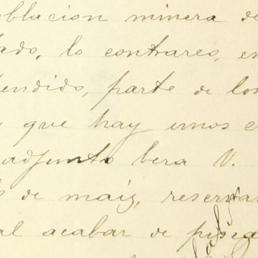 blacion minera de
ado, lo contrares, en
endido, parte de los
que hay unos c
adjunto bera V.
s de maiz, reserva
al acabar de pisca